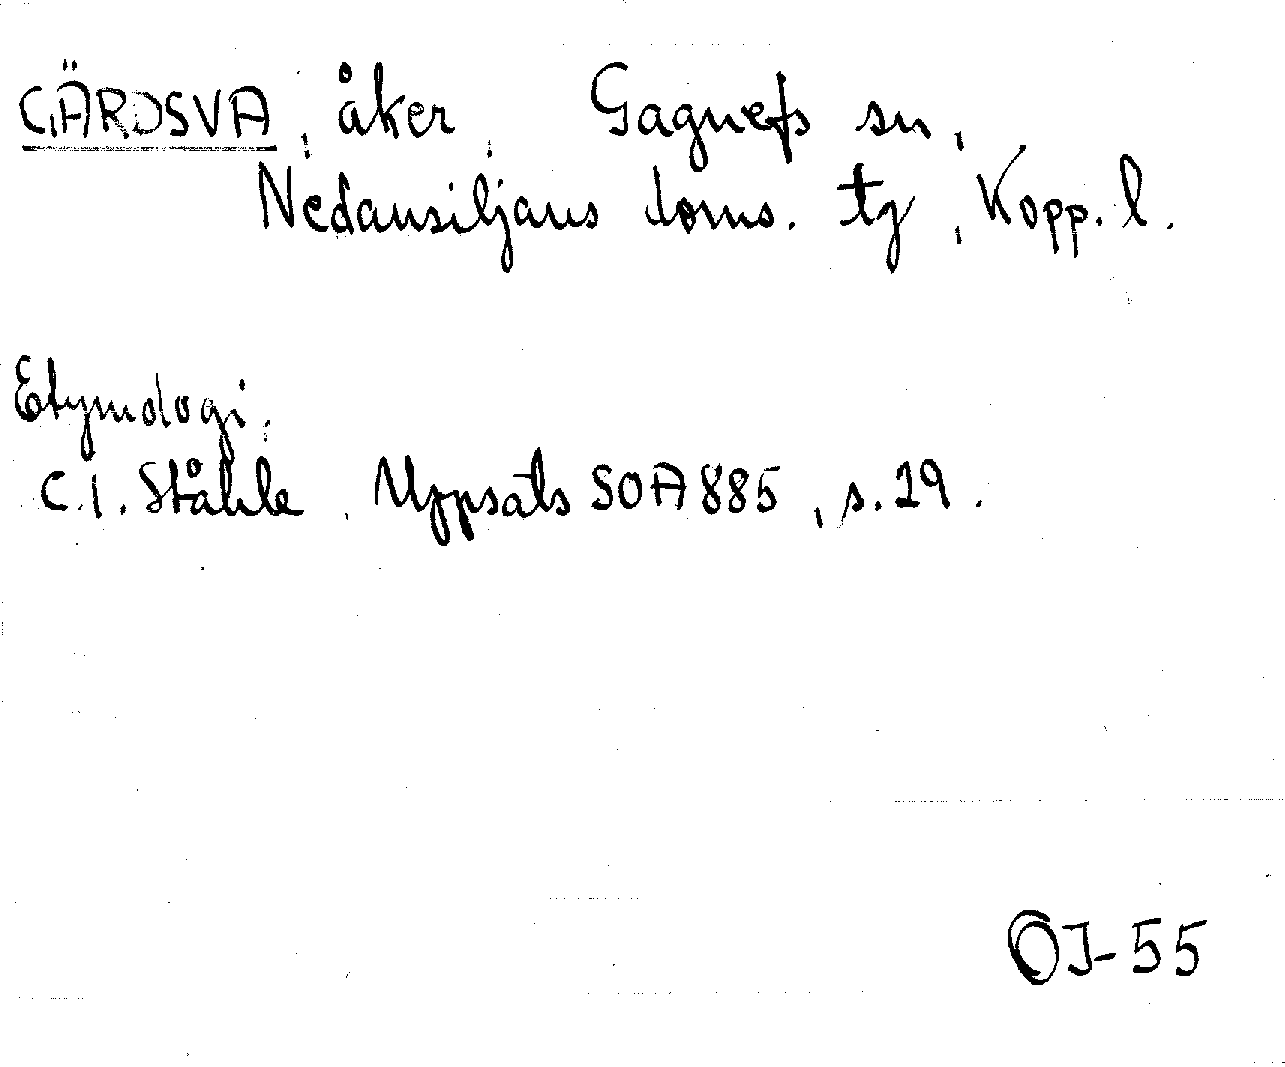 GÄRDSVA, åker, Gagnefs sn,
Nedansiljans doms. tg, Kopp. l.
Etymologi,
C.I. Ståhle, Uppsats SOA 885, s. 29.
OJ-55